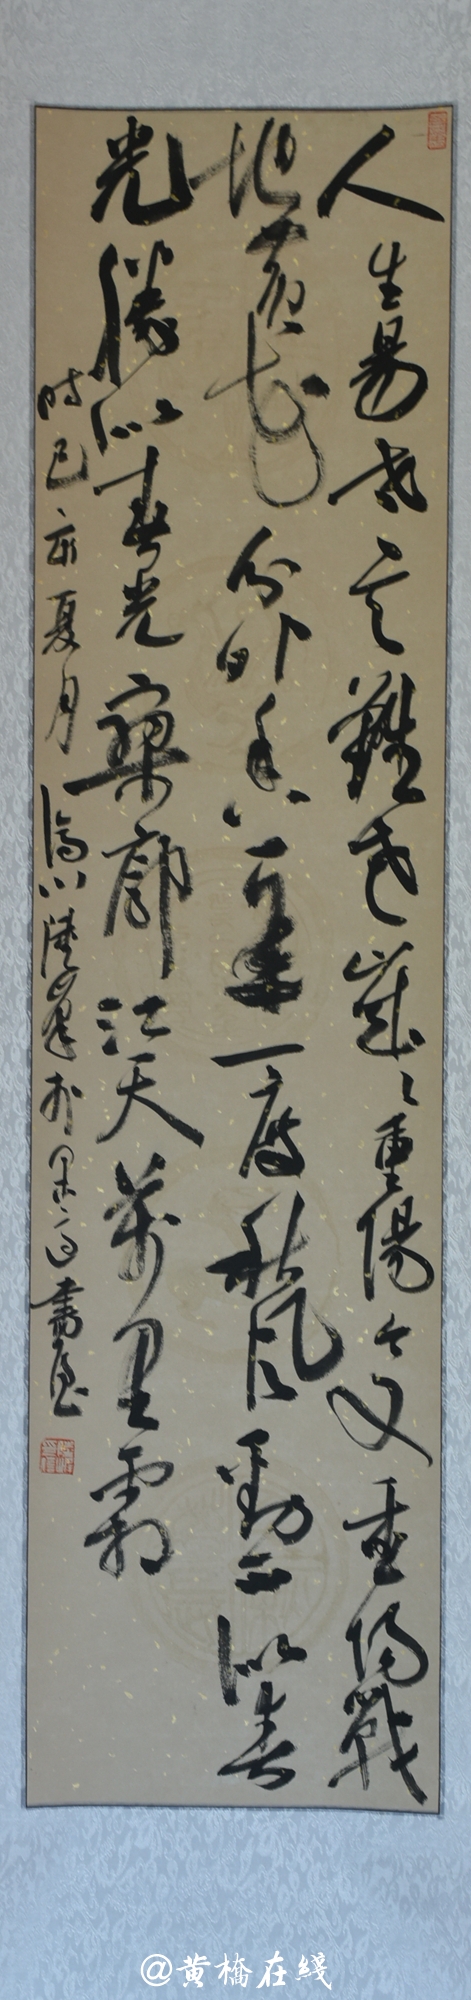 人生易老天難老歲々重陽今又重陽戰
地黃花分外香一年一度秋風勁不似春
光勝似春光寥廓江天萬里霜
時己亥夏月濟川陸峯於墨書屋
@黄橋在綫